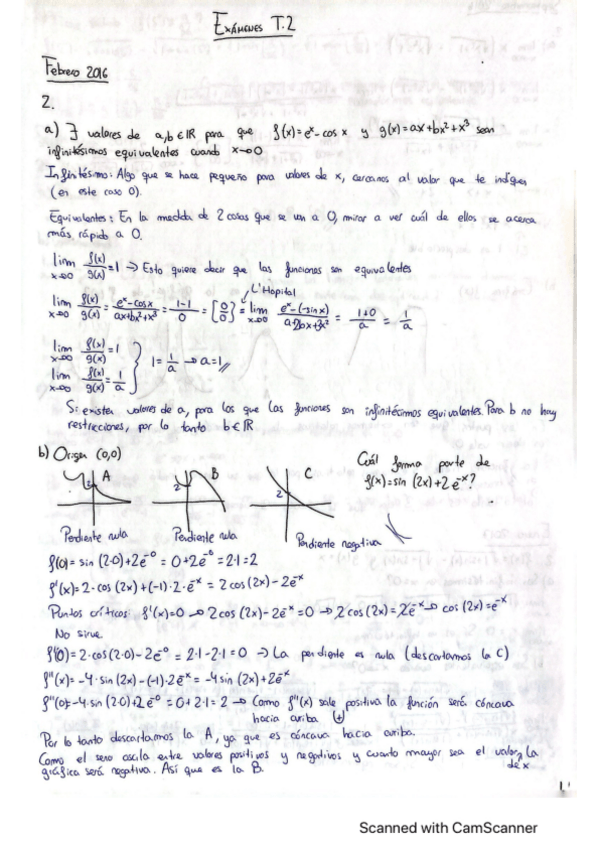 EXÁMENES T.2
Febrero 2016
2.
a) ∃ valores de a,b∈ℝ para que f(x)=e^x-cos x y g(x)=ax+bx²+x³ sean
infinitésimos equivalentes cuando x→0
Infinitésimo: Algo que se hace pequeño para valores de x, cercanos al valor que te indiquen
(en este caso 0).
Equivalentes: En la medida de 2 cosas que se van a 0, mirar a ver cuál de ellos se acerca
más rápido a 0.
lim x→0 f(x)/g(x) = 1 → Esto quiere decir que las funciones son equivalentes
L'Hopital
lim x→0 f(x)/g(x) = e^x-cos x/ax+bx²+x³ = 1-1/0 = [0/0] = lim x→0 e^x-(-sin x)/a+2bx+3x² = 1+0/a = 1/a
lim x→0 f(x)/g(x) = 1
lim x→0 f(x)/g(x) = 1/a } 1 = 1/a → a=1//
Si existen valores de a, para los que las funciones son infinitécimos equivalentes. Para b no hay
restricciones, por lo tanto b∈ℝ
b) Origen (0,0)
A B C
2 2 2
Cuál forma parte de
f(x)=sin (2x)+2e^-x?
Pendiente nula Pendiente nula Pendiente negativa
f(0)= sin (2·0)+2e^-0 = 0+2e^-0 = 2·1=2
f'(x)= 2·cos (2x)+(-1)·2·e^-x = 2cos(2x)-2e^-x
Puntos críticos: f'(x)=0 → 2cos(2x)-2e^-x=0 → 2cos(2x)=2e^-x → cos(2x)=e^-x
No sirve.
f'(0)= 2·cos(2·0)-2e^-0 = 2·1-2·1=0 → La pendiente es nula (descartamos la C)
f''(x)= -4·sin (2x)-(-1)·2e^-x = -4sin(2x)+2e^-x
f''(0)= -4·sin (2·0)+2e^-0 = 0+2·1=2 → Como f''(x) sale positiva la función será cóncava
hacia arriba (+)
Por lo tanto descartamos la A, ya que es cóncava hacia arriba.
Como el seno oscila entre valores positivos y negativos y cuanto mayor sea el valor de x, la
gráfica será negativa. Así que es la B.
Scanned with CamScanner